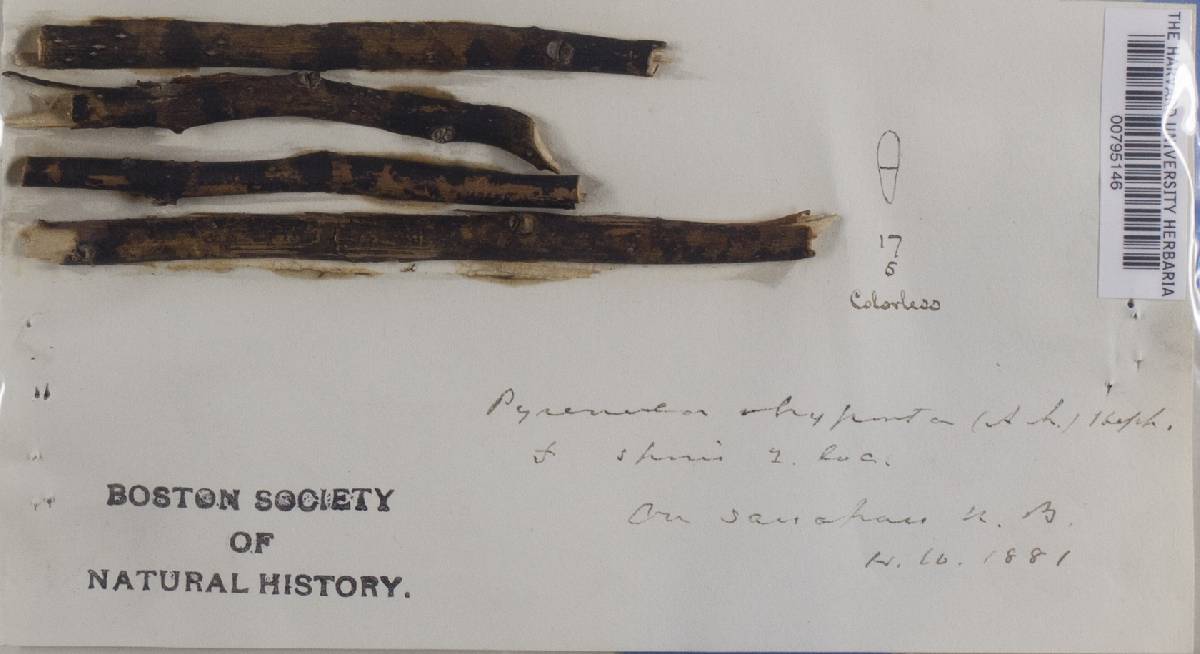 THE HARVARD UNIVERSITY HERBARIA
00795146
17
6
Colorless
Pyrenula rhyponta (Ach.) Heph.
On sassafras N. B.
H. W. 1881
BOSTON SOCIETY
OF
NATURAL HISTORY.